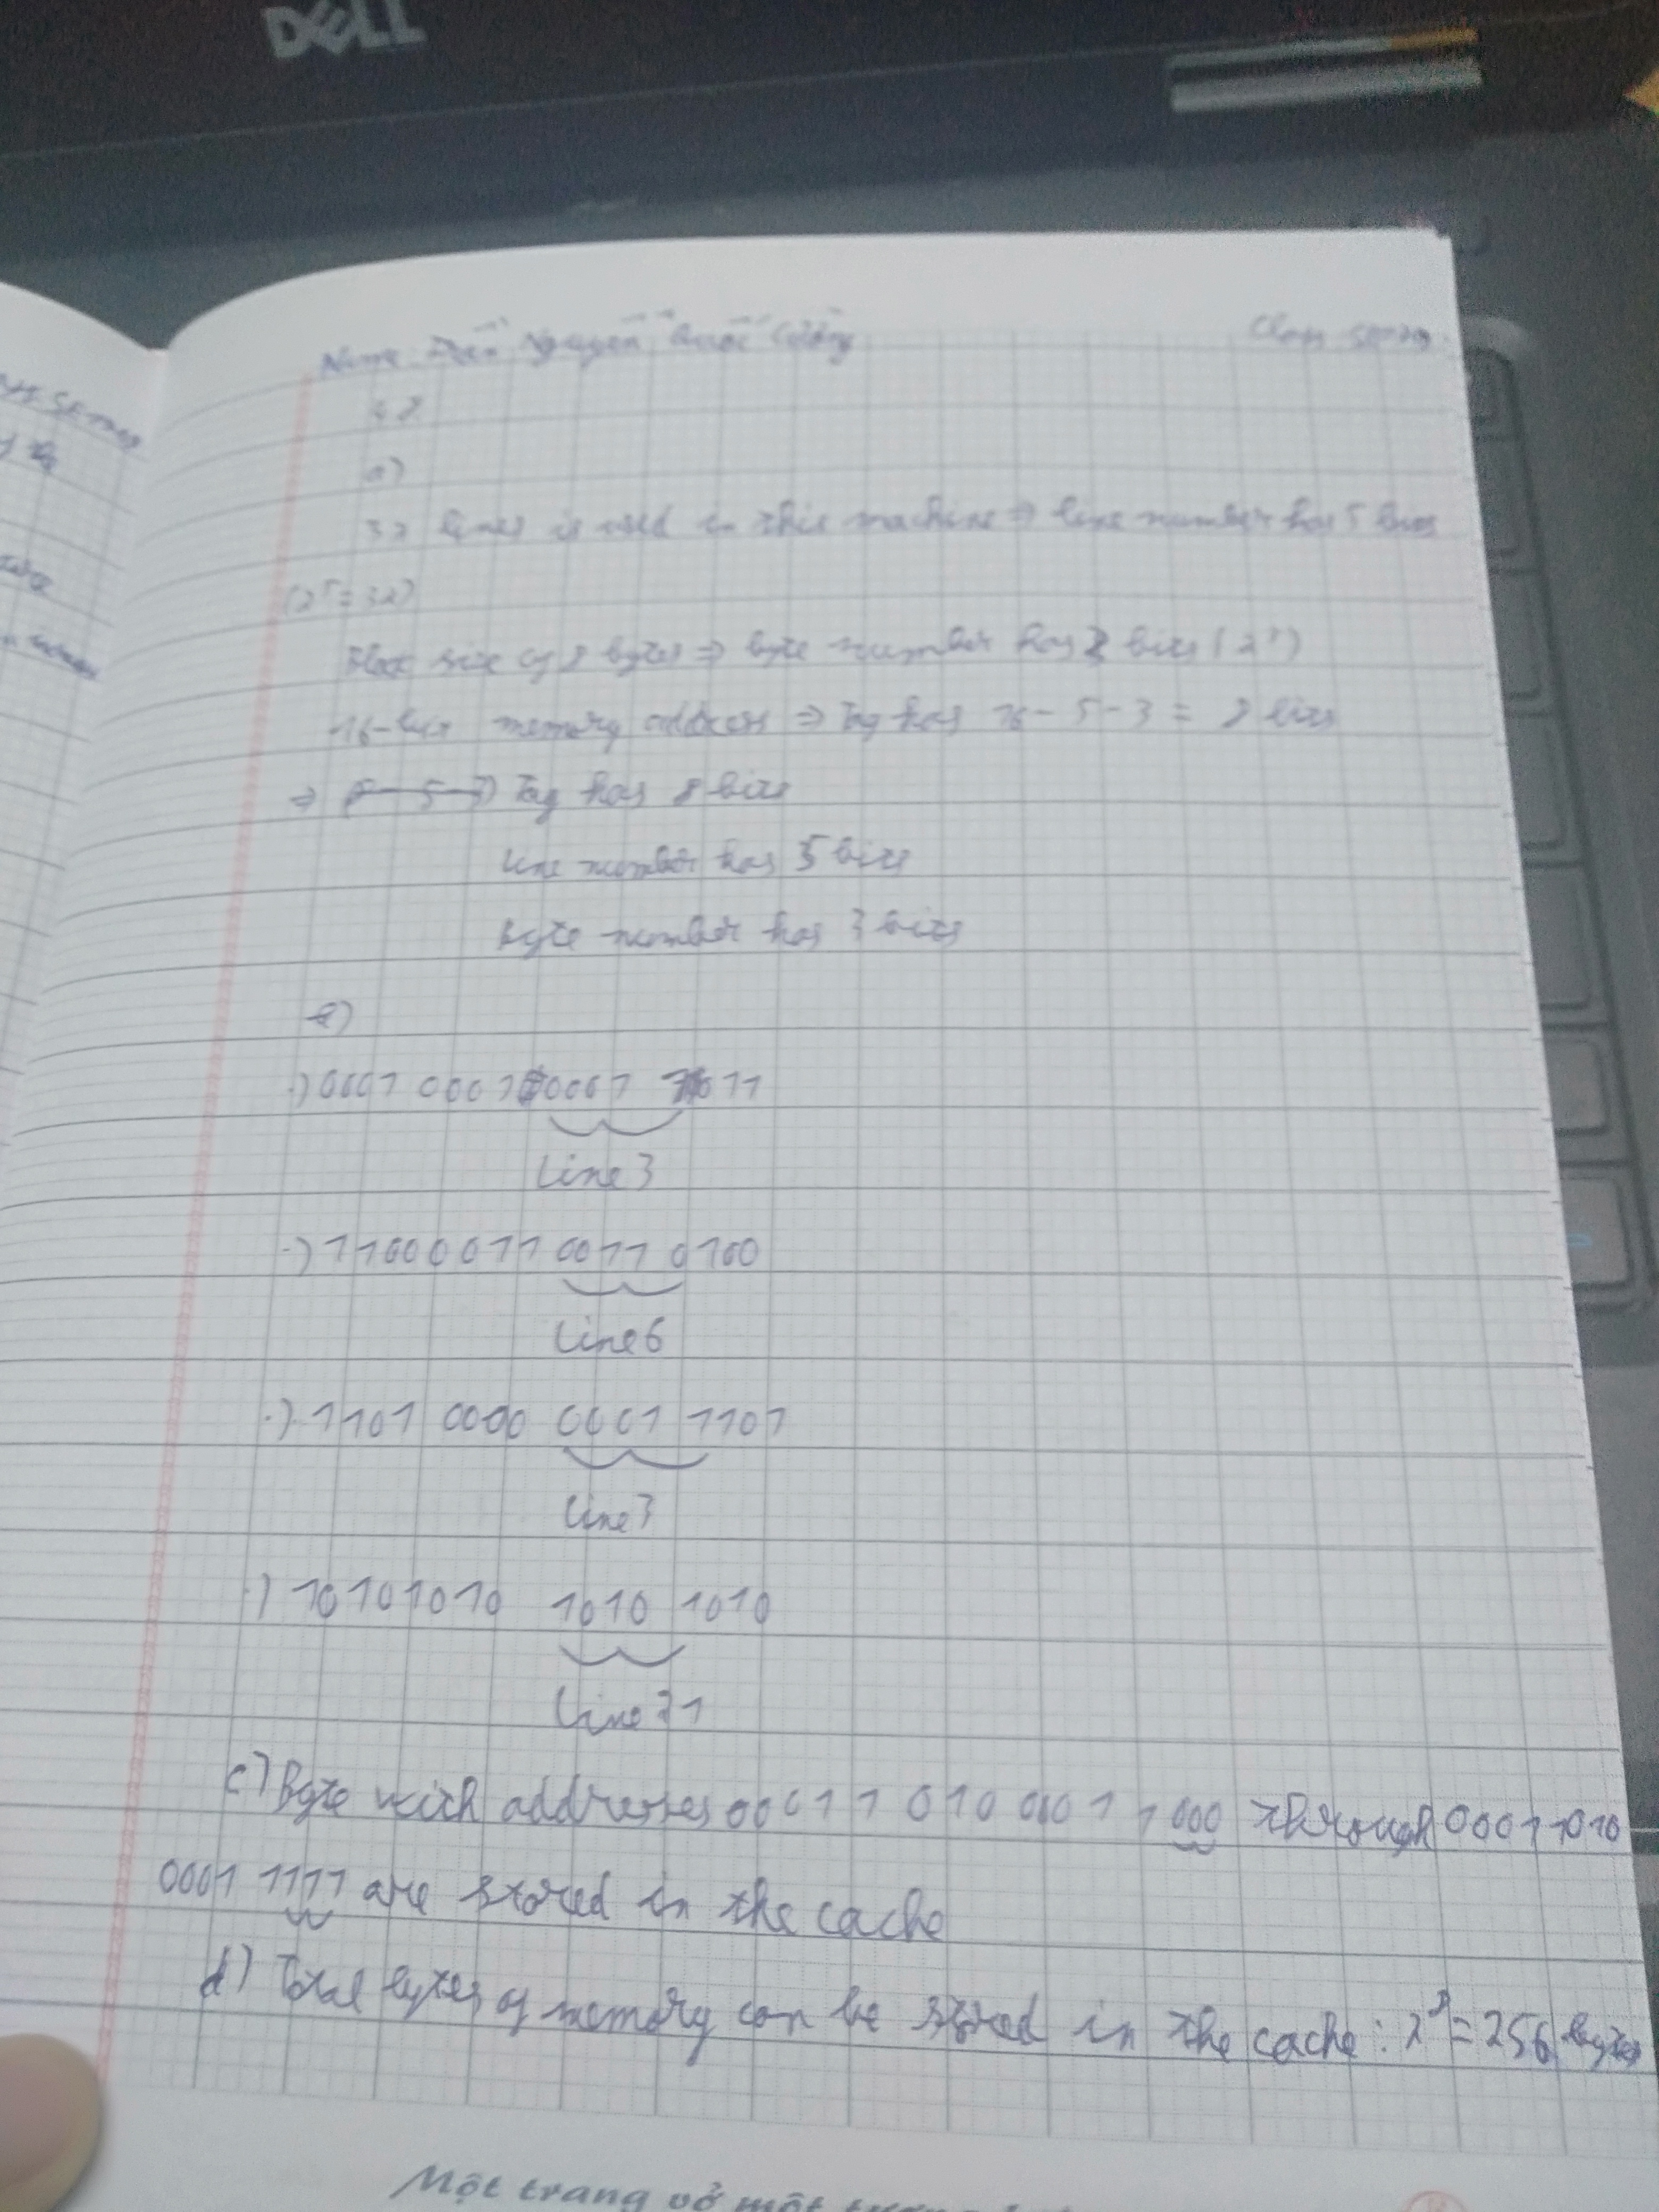 DELL
Name: Nguyễn Quốc Cường Class
4.8
a)
32 lines is used in this machine ⇒ line number has 5 bits
(2⁵=32)
Block size of 8 bytes ⇒ byte number has 3 bits (2³)
16-bit memory address ⇒ Tag has 16-5-3 = 8 bits
⇒ Tag has 8 bits
Line number has 5 bits
Byte number has 3 bits
b)
·) 0001 0001 0001 1011
Line 3
·) 1100 0011 0011 0100
Line 6
·) 1101 0000 0001 1101
Line 3
·) 1010 1010 1010 1010
Line 21
c) Byte with addresses 0001 1010 0001 1000 through 0001 1010
0001 1111 are stored in the cache
d) Total bytes of memory can be stored in the cache: 2⁸=256 bytes
Một trang vở một